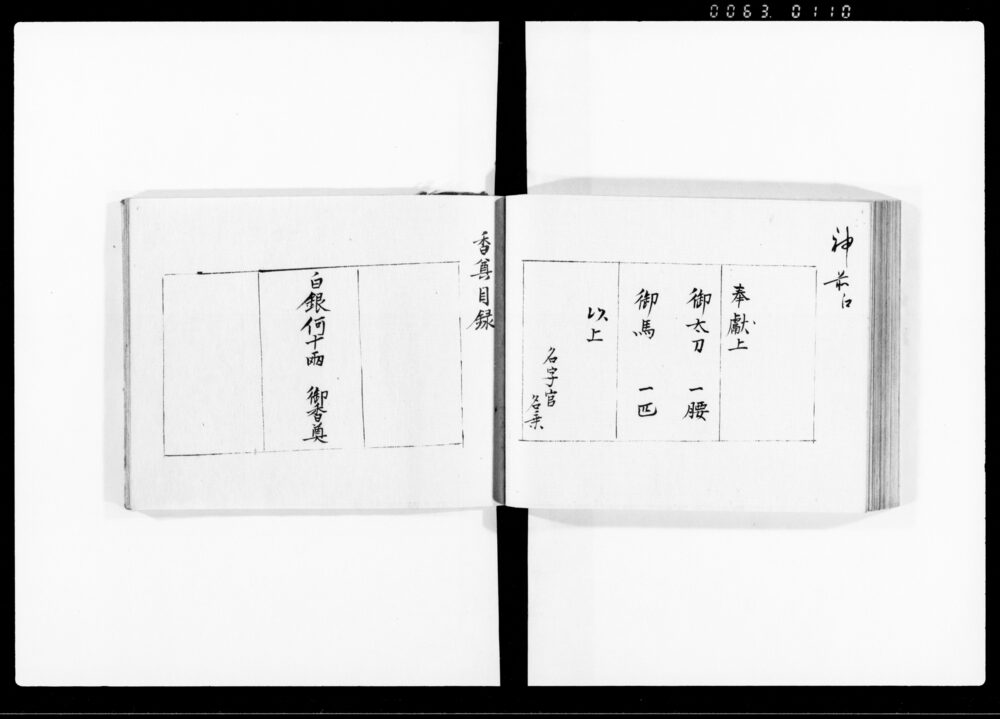 0063 0110
神前
奉獻上
御太刀 一腰
御馬 一匹
以上
名字官
名乗
香奠目録
白銀何十兩 御香奠